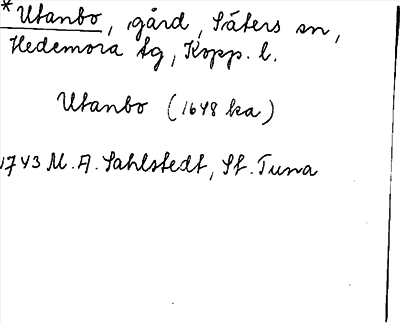 * Utanbo, gård, Säters sn,
Hedemora tg, Kopp. l.
Utanbo (1648 ka)
1743 M. A. Sahlstedt, St. Tuna